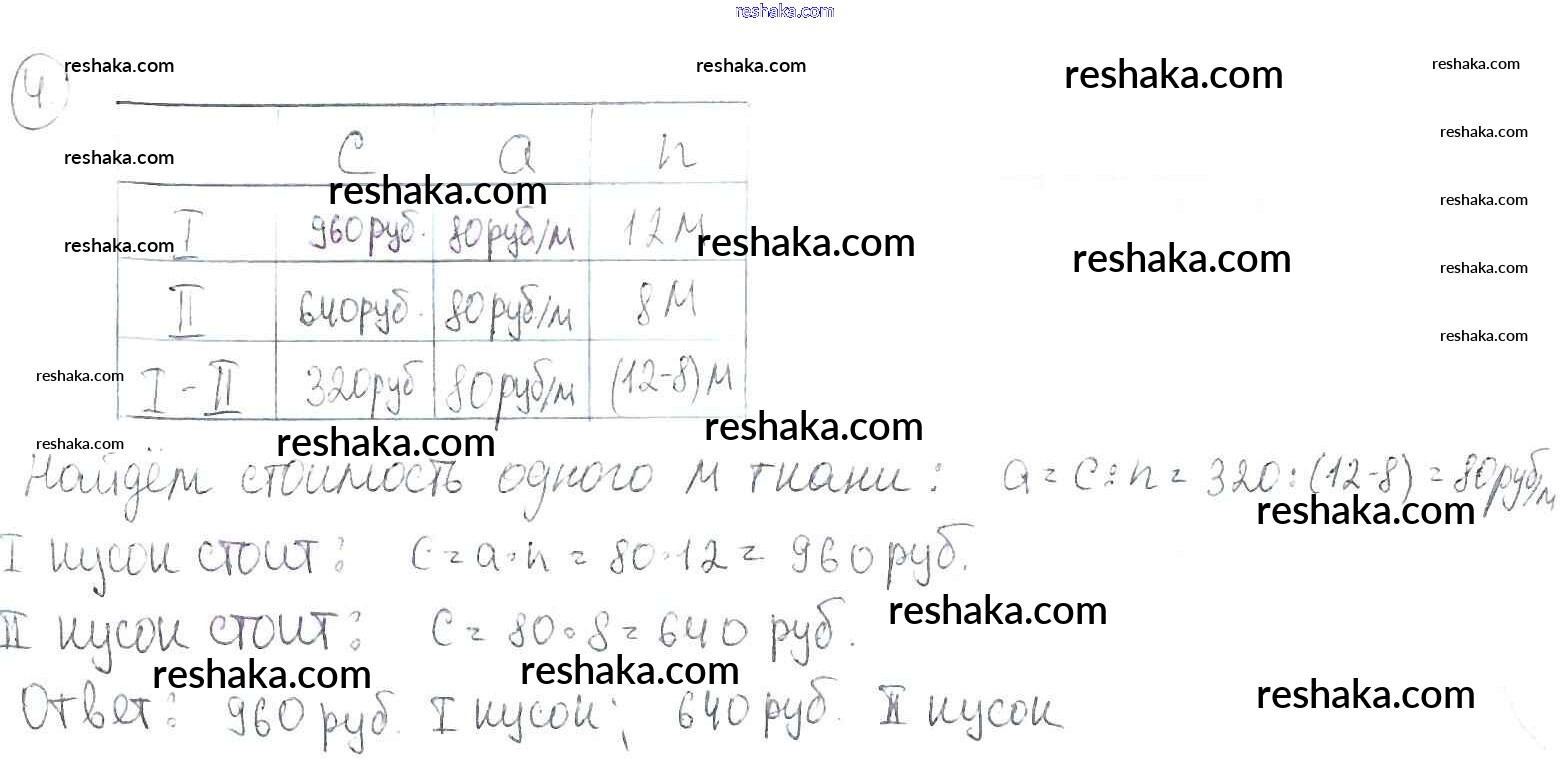 reshaka.com
reshaka.com reshaka.com reshaka.com reshaka.com
4
reshaka.com
C a n
reshaka.com reshaka.com
reshaka.com
I 960 руб. 80 руб/м 12 м
reshaka.com reshaka.com reshaka.com reshaka.com
II 640 руб. 80 руб/м 8 м
reshaka.com
reshaka.com
I - II 320 руб 80 руб/м (12-8) м
reshaka.com reshaka.com reshaka.com
Найдём стоимость одного м ткани: a = C : n = 320 : (12-8) = 80 руб/м
reshaka.com
I кусок стоит: C = a · n = 80 · 12 = 960 руб.
reshaka.com
II кусок стоит: C = 80 · 8 = 640 руб.
reshaka.com reshaka.com reshaka.com
Ответ: 960 руб. I кусок; 640 руб. II кусок